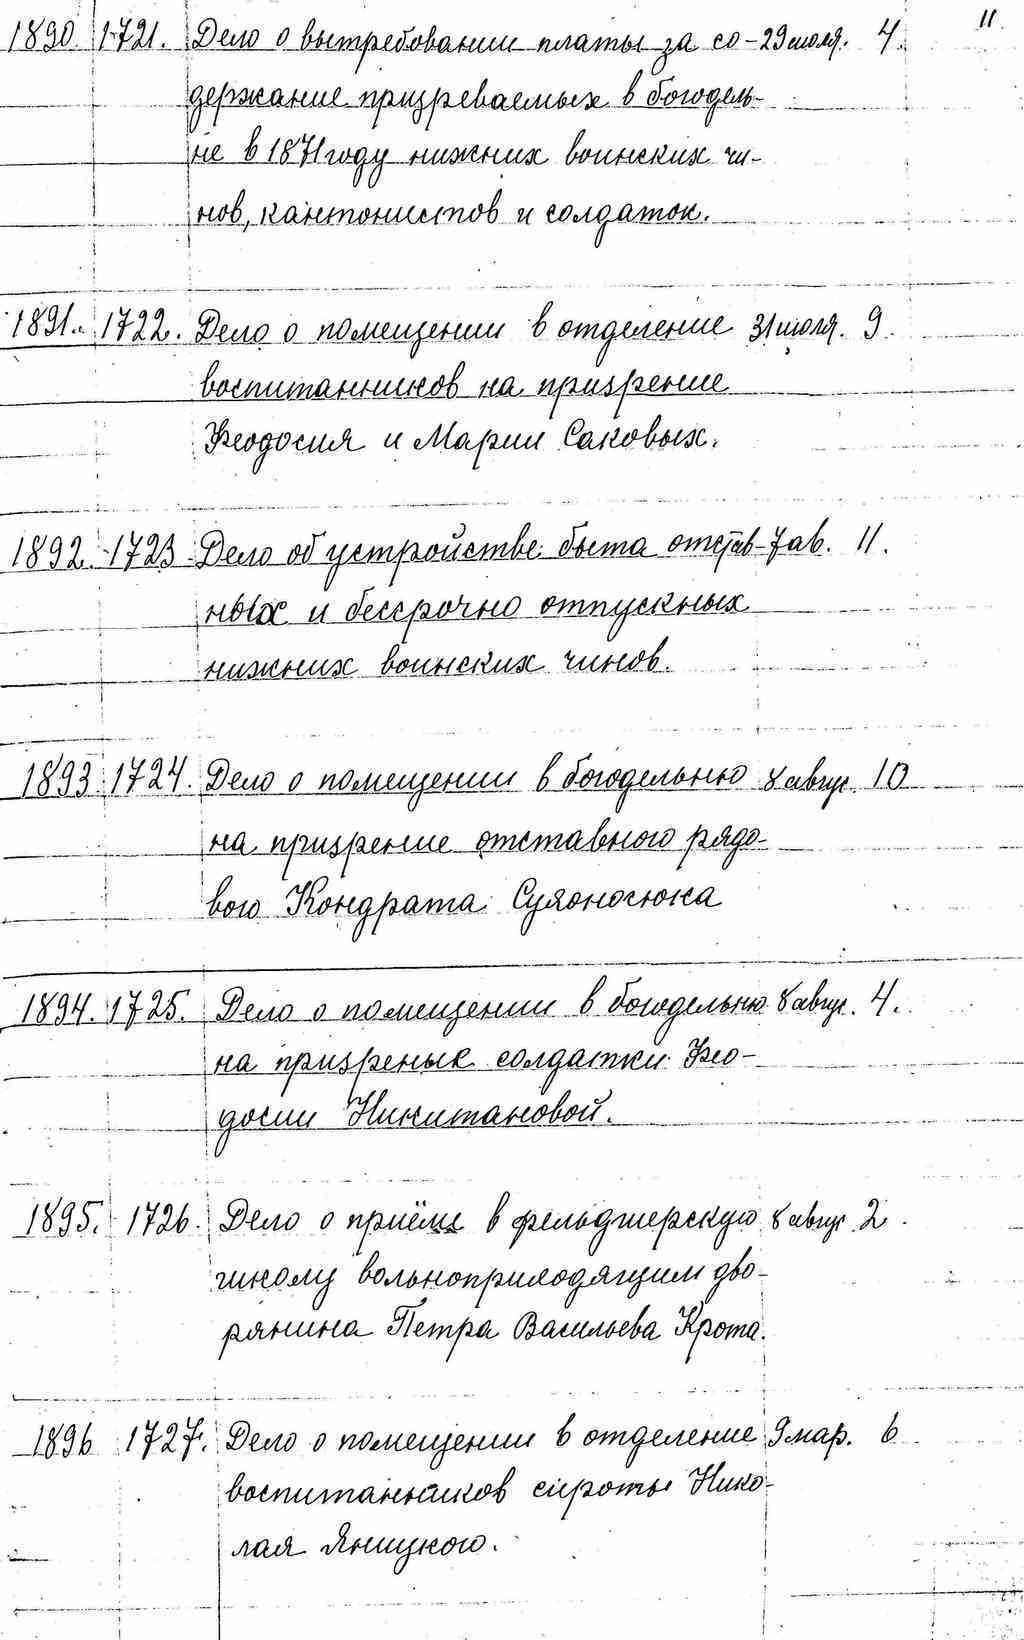 11.
1890. 1721. Дело о вытребовании платы за со- 29 июля. 4.
держание призреваемых в богодель-
не в 1871 году нижних воинских чи-
нов, кантонистов и солдаток.
1891. 1722. Дело о помещении в отделение 31 июля. 9.
воспитанников на призрение
Феодосия и Марии Саковых.
1892. 1723 Дело об устройстве быта отстав- 7 ав. 11.
ных и бессрочно отпускных
нижних воинских чинов.
1893 1724. Дело о помещении в богодельню 8 авгус. 10
на призрение отставного рядо-
вого Кондрата
1894. 1725. Дело о помещении в богодельню 8 авгус. 4.
на призренье солдатки Фео-
досии Никитановой.
1895. 1726. Дело о приёме в фельдшерскую 8 авгус 2.
школу вольноприходящим дво-
рянина Петра Васильева Крота.
1896 1727. Дело о помещении в отделение 9 мар. 6
воспитанников сироты Нико-
лая Яницкого.